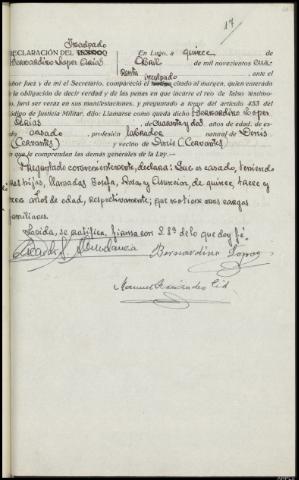 17
Inculpado
DECLARACIÓN DEL TESTIGO
Bernardino Lopez Arias
En Lugo, a quince de
Abril de mil novecientos cua-
renta, ante el
Juez y de mi el Secretario, compareció el inculpado citado al márgen, quien enterado
de la obligación de decir verdad y de las penas en que incurre el reo de falso testimo-
nio, juró ser veraz en sus manifestaciones, y preguntado a tenor del artículo 453 del
Código de Justicia Militar, dijo: Llamarse como queda dicho Bernardino Lopez
Arias, de cuarenta y dos años de edad, de es-
tado casado, profesión labrador natural de Donis
(Cervantes) y vecino de Donis (Cervantes)
que le comprendan las demás generales de la Ley.—
Preguntado convenientemente, declara: Que es casado, teniendo
tres hijas, llamadas Josefa, Dora y Asuncion, de quince, trece y
tres años de edad, respectivamente; que no tiene otras cargas
familiares.
Leida, se ratifica, firma con S. Sª de lo que doy fé.
Bernardino Lopez
Manuel Fernández Cid